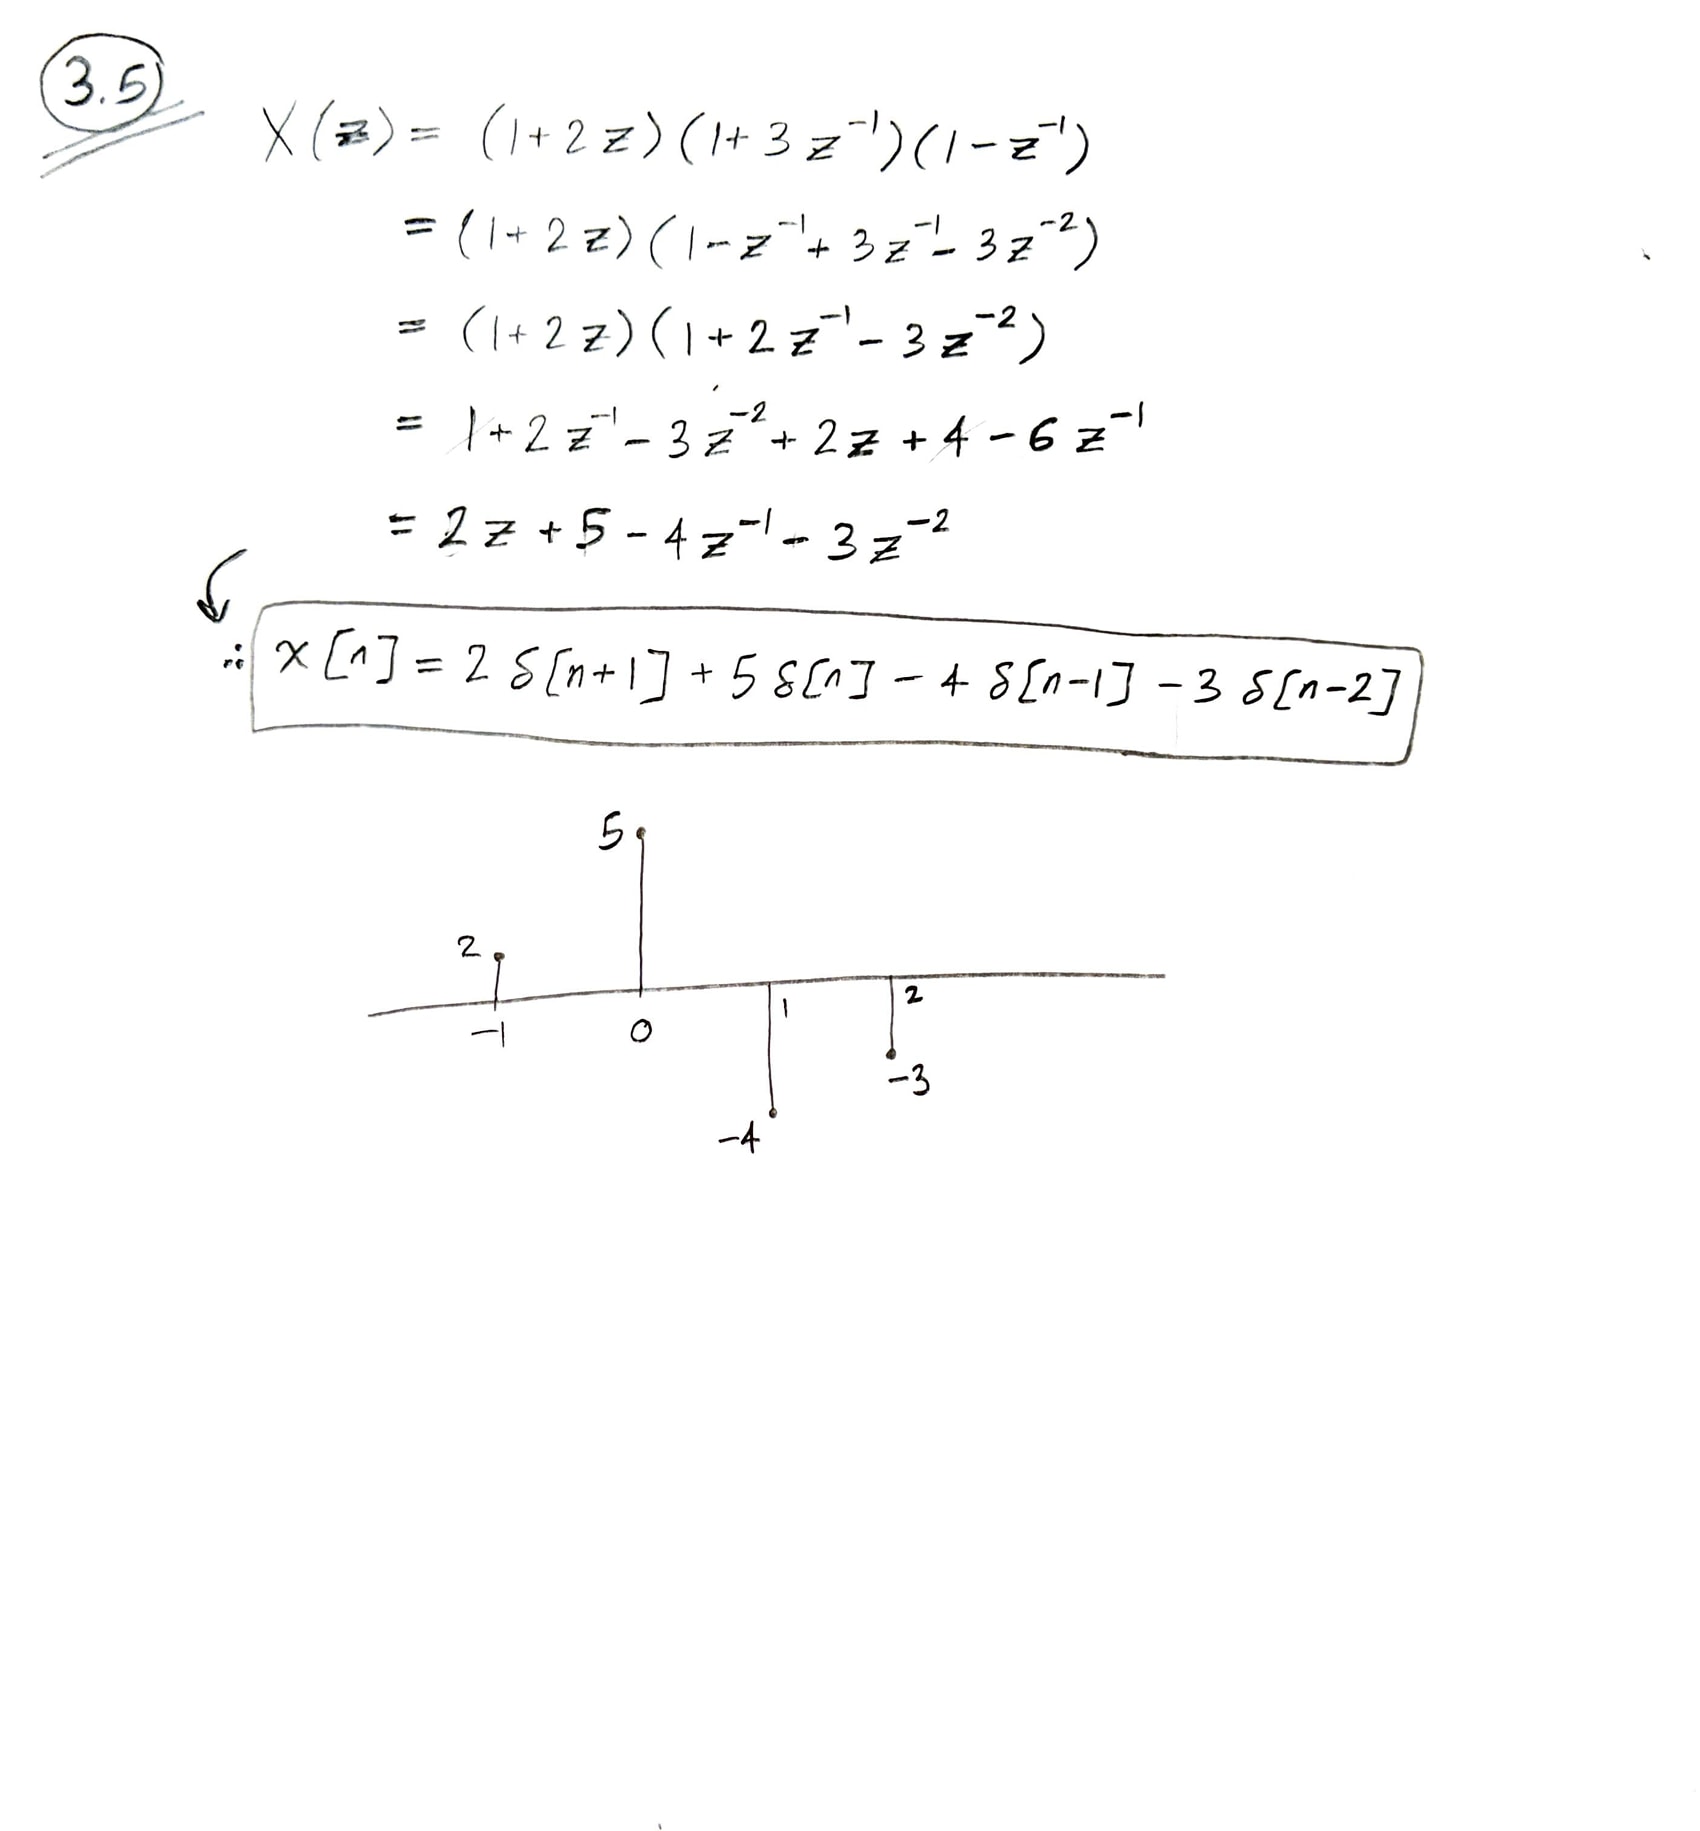 3.5
X(z) = (1+2z)(1+3z⁻¹)(1-z⁻¹)
= (1+2z)(1-z⁻¹+3z⁻¹-3z⁻²)
= (1+2z)(1+2z⁻¹-3z⁻²)
= 1+2z⁻¹-3z⁻²+2z+4-6z⁻¹
= 2z+5-4z⁻¹-3z⁻²
∴ x[n] = 2δ[n+1]+5δ[n]-4δ[n-1]-3δ[n-2]
5
2
-1 0 1 2
-3
-4